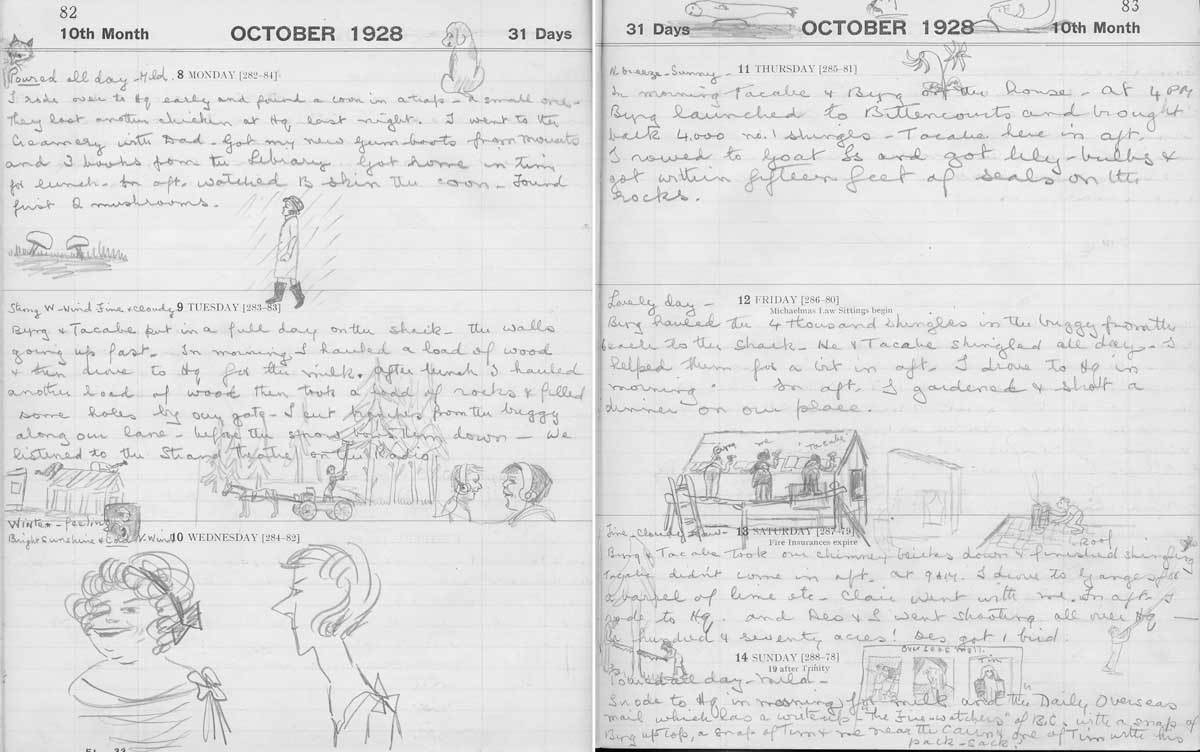 82
10th Month OCTOBER 1928 31 Days
Poured all day - Mild. 8 MONDAY [282-84]
I rode over to Hq early and found a coon in a trap - a small one -
They lost another chicken at Hq last night. I went to the
Creamery with Dad - Got my new gum-boots from Mouats
and 3 books from the Library. Got home in time
for lunch - In aft. watched B skin the coon - Found
first 2 mushrooms.
Strong W-wind Fine & cloudy 9 TUESDAY [283-83]
Byrg & Tacabe put in a full day on the shack - the walls
going up fast. In morning I hauled a load of wood
& then drove to Hq for the milk. After lunch I hauled
another load of wood then took a load of rocks & filled
some holes by our gate - I cut from the buggy
along our lane - before the snow them down - We
listened to the Strand theatre on the Radio
Winter - feeling
Bright Sunshine & Cold N. Wind 10 WEDNESDAY [284-82]
83
31 Days OCTOBER 1928 10th Month
N breeze - Sunny - 11 THURSDAY [285-81]
In morning Tacabe & Byrg on the house - at 4 PM
Byrg launched to Bittencourts and brought
back 4,000 no. 1 shingles - Tacabe here in aft.
I rowed to Goat Is and got lily-bulbs &
got within fifteen feet of seals on the
rocks.
Lovely day - 12 FRIDAY [286-80]
Michaelmas Law Sittings begin
Byrg hauled the 4 thousand shingles in the buggy from the
beach to the shack - He & Tacabe shingled all day - I
helped them for a bit in aft. I drove to Hq in
morning. In aft. I gardened & shot a
dinner on our place.
Byrg me Tacabe
Roof
Fine - Cloudy 13 SATURDAY [287-79]
Fire Insurances expire
Byrg & Tacabe took our chimney bricks down & finished shingling
Tacabe didn't come in aft. at 9 AM. I drove to Ganges for
a barrel of lime etc - Clair went with me. In aft. I
rode to Hq. and Des & I went shooting all over Hq -
hundred & seventy acres! Des got 1 bird.
14 SUNDAY [288-78]
19 after Trinity
Overseas Mail.
Tim
Poured all day - mild -
I rode to Hq in morning for milk and the Daily Overseas
mail which has a write up - "The Fire-watchers" of B.C. with a snap of
Byrg up top, a snap of Tim & me near the Cairn & one of Tim with his
pack-sack